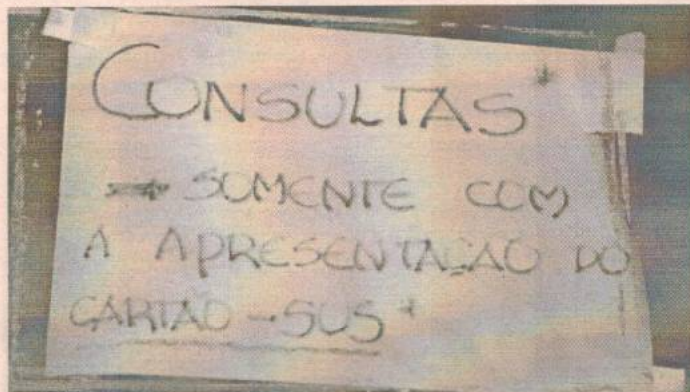 CONSULTAS*
→ SOMENTE COM
A APRESENTAÇÃO DO
CARTÃO - SUS*